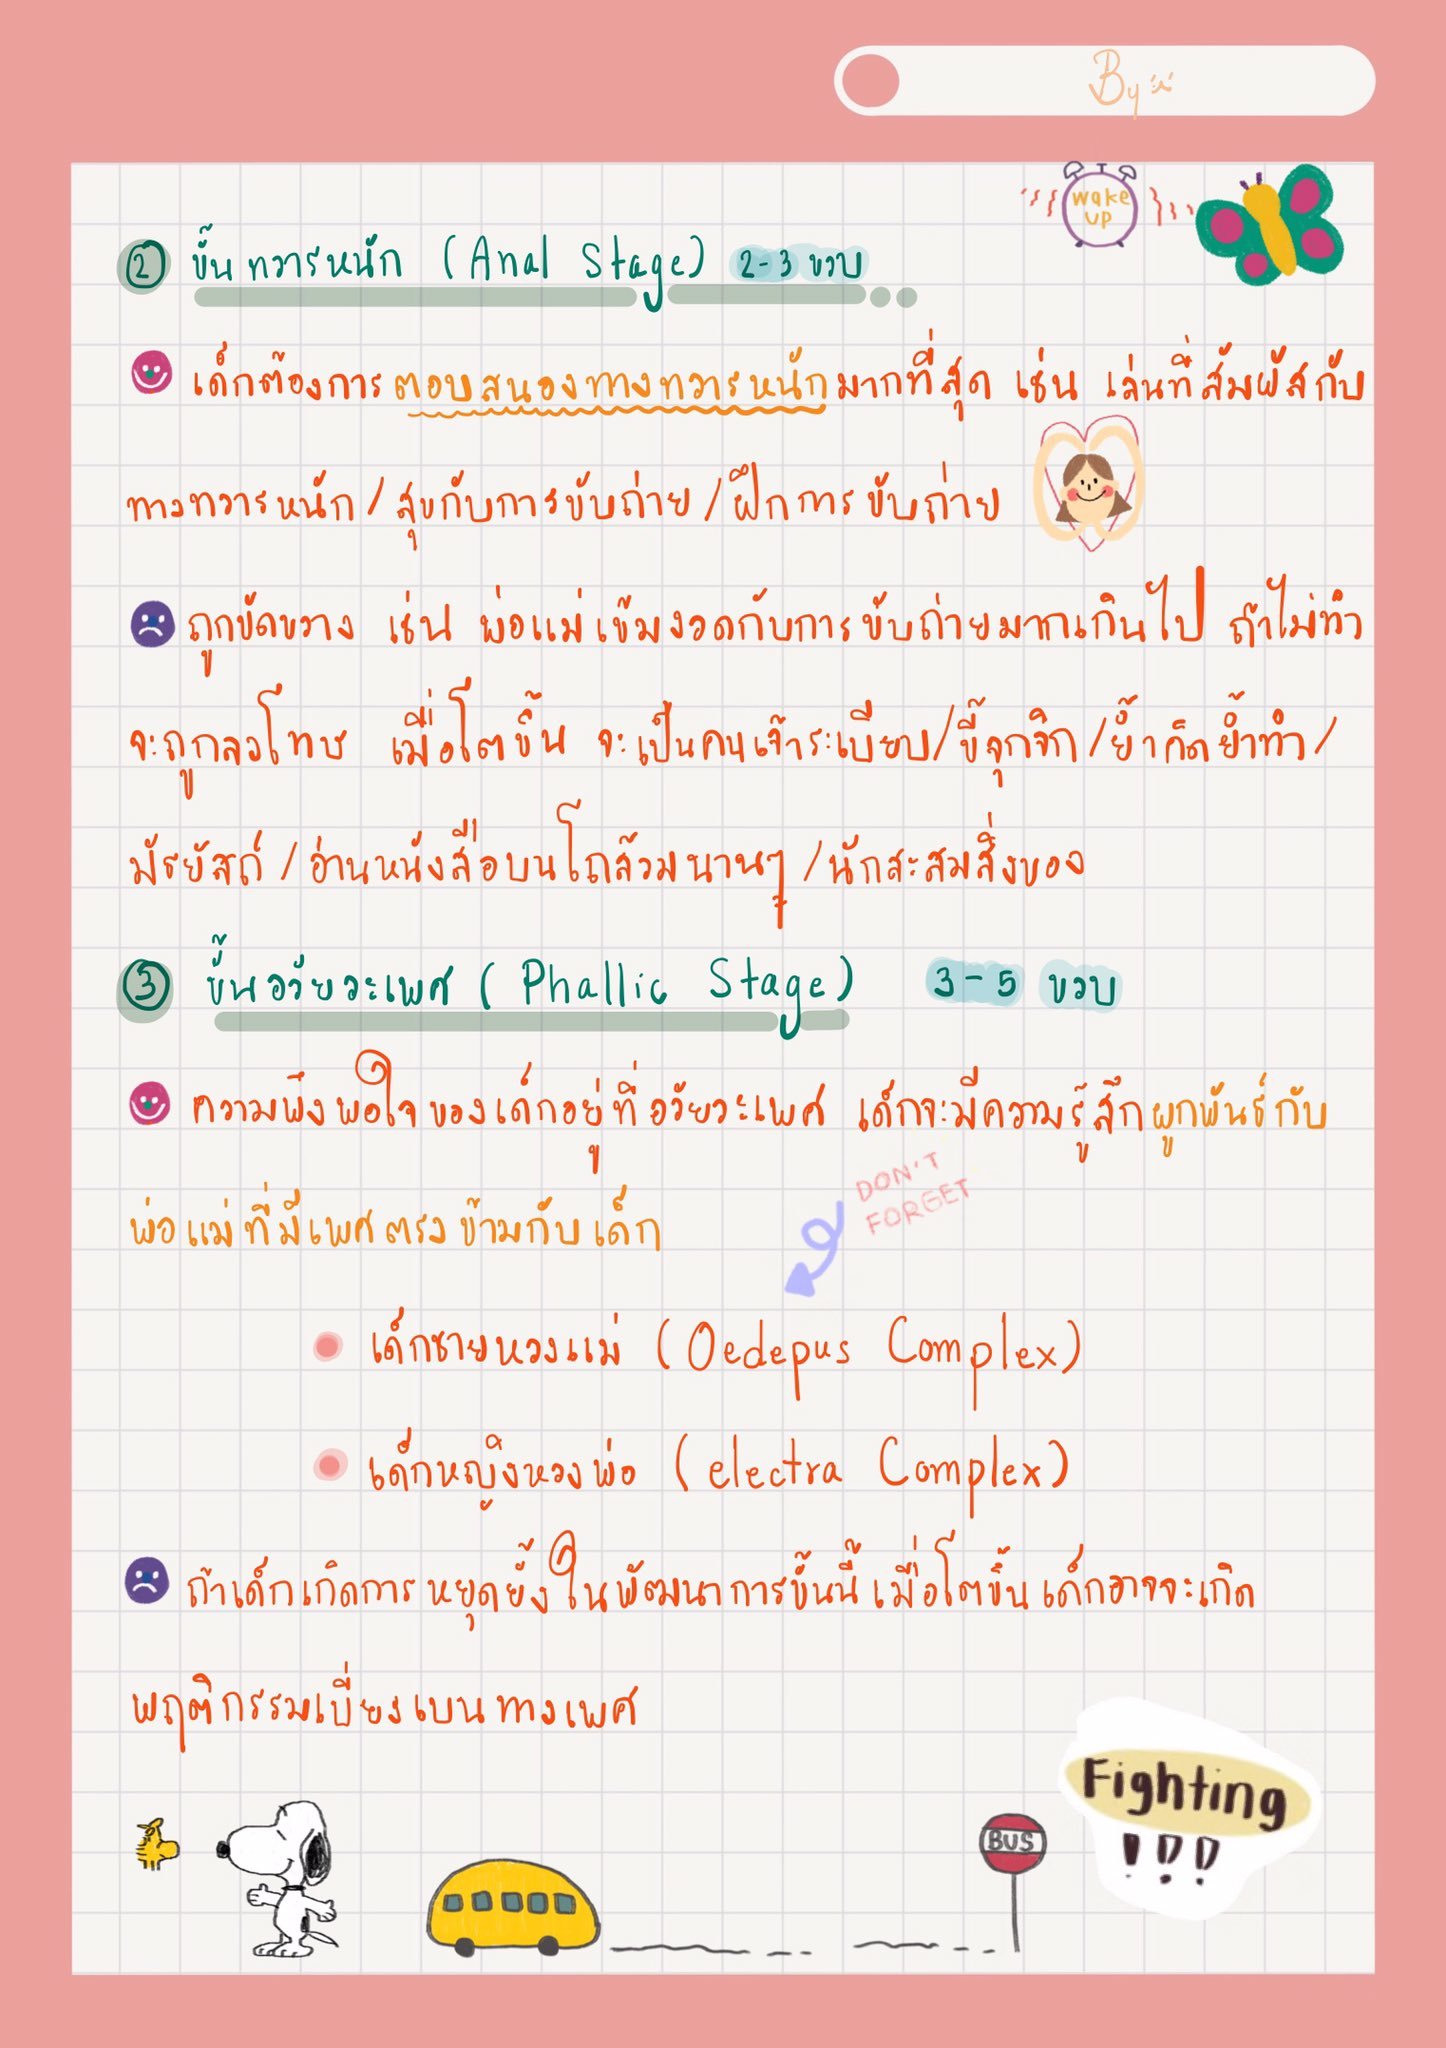 By
wake
UP
② ขั้นทวารหนัก (Anal Stage) 2-3 ขวบ
เด็กต้องการตอบสนองทางทวารหนักมากที่สุด เช่น เล่นที่สัมผัสกับ
ทางทวารหนัก/สุขกับการขับถ่าย/ฝึกการขับถ่าย
ถูกขัดขวาง เช่น พ่อแม่เข้มงวดกับการขับถ่ายมากเกินไป ถ้าไม่ทำ
จะถูกลงโทษ เมื่อโตขึ้น จะเป็นคนเจ้าระเบียบ/ขี้จุกจิก/ย้ำคิดย้ำทำ/
มัธยัสถ์/อ่านหนังสือบนโถส้วมนานๆ/นักสะสมสิ่งของ
③ ขั้นอวัยวะเพศ (Phallic Stage) 3-5 ขวบ
ความพึงพอใจของเด็กอยู่ที่อวัยวะเพศ เด็กจะมีความรู้สึกผูกพันธ์กับ
พ่อแม่ที่มีเพศตรงข้ามกับเด็ก
DON'T
FORGET
เด็กชายหวงแม่ (Oedepus Complex)
เด็กหญิงหวงพ่อ (electra Complex)
ถ้าเด็กเกิดการหยุดยั้งในพัฒนาการขั้นนี้ เมื่อโตขึ้นเด็กอาจจะเกิด
พฤติกรรมเบี่ยงเบนทางเพศ
Fighting
!!!
BUS